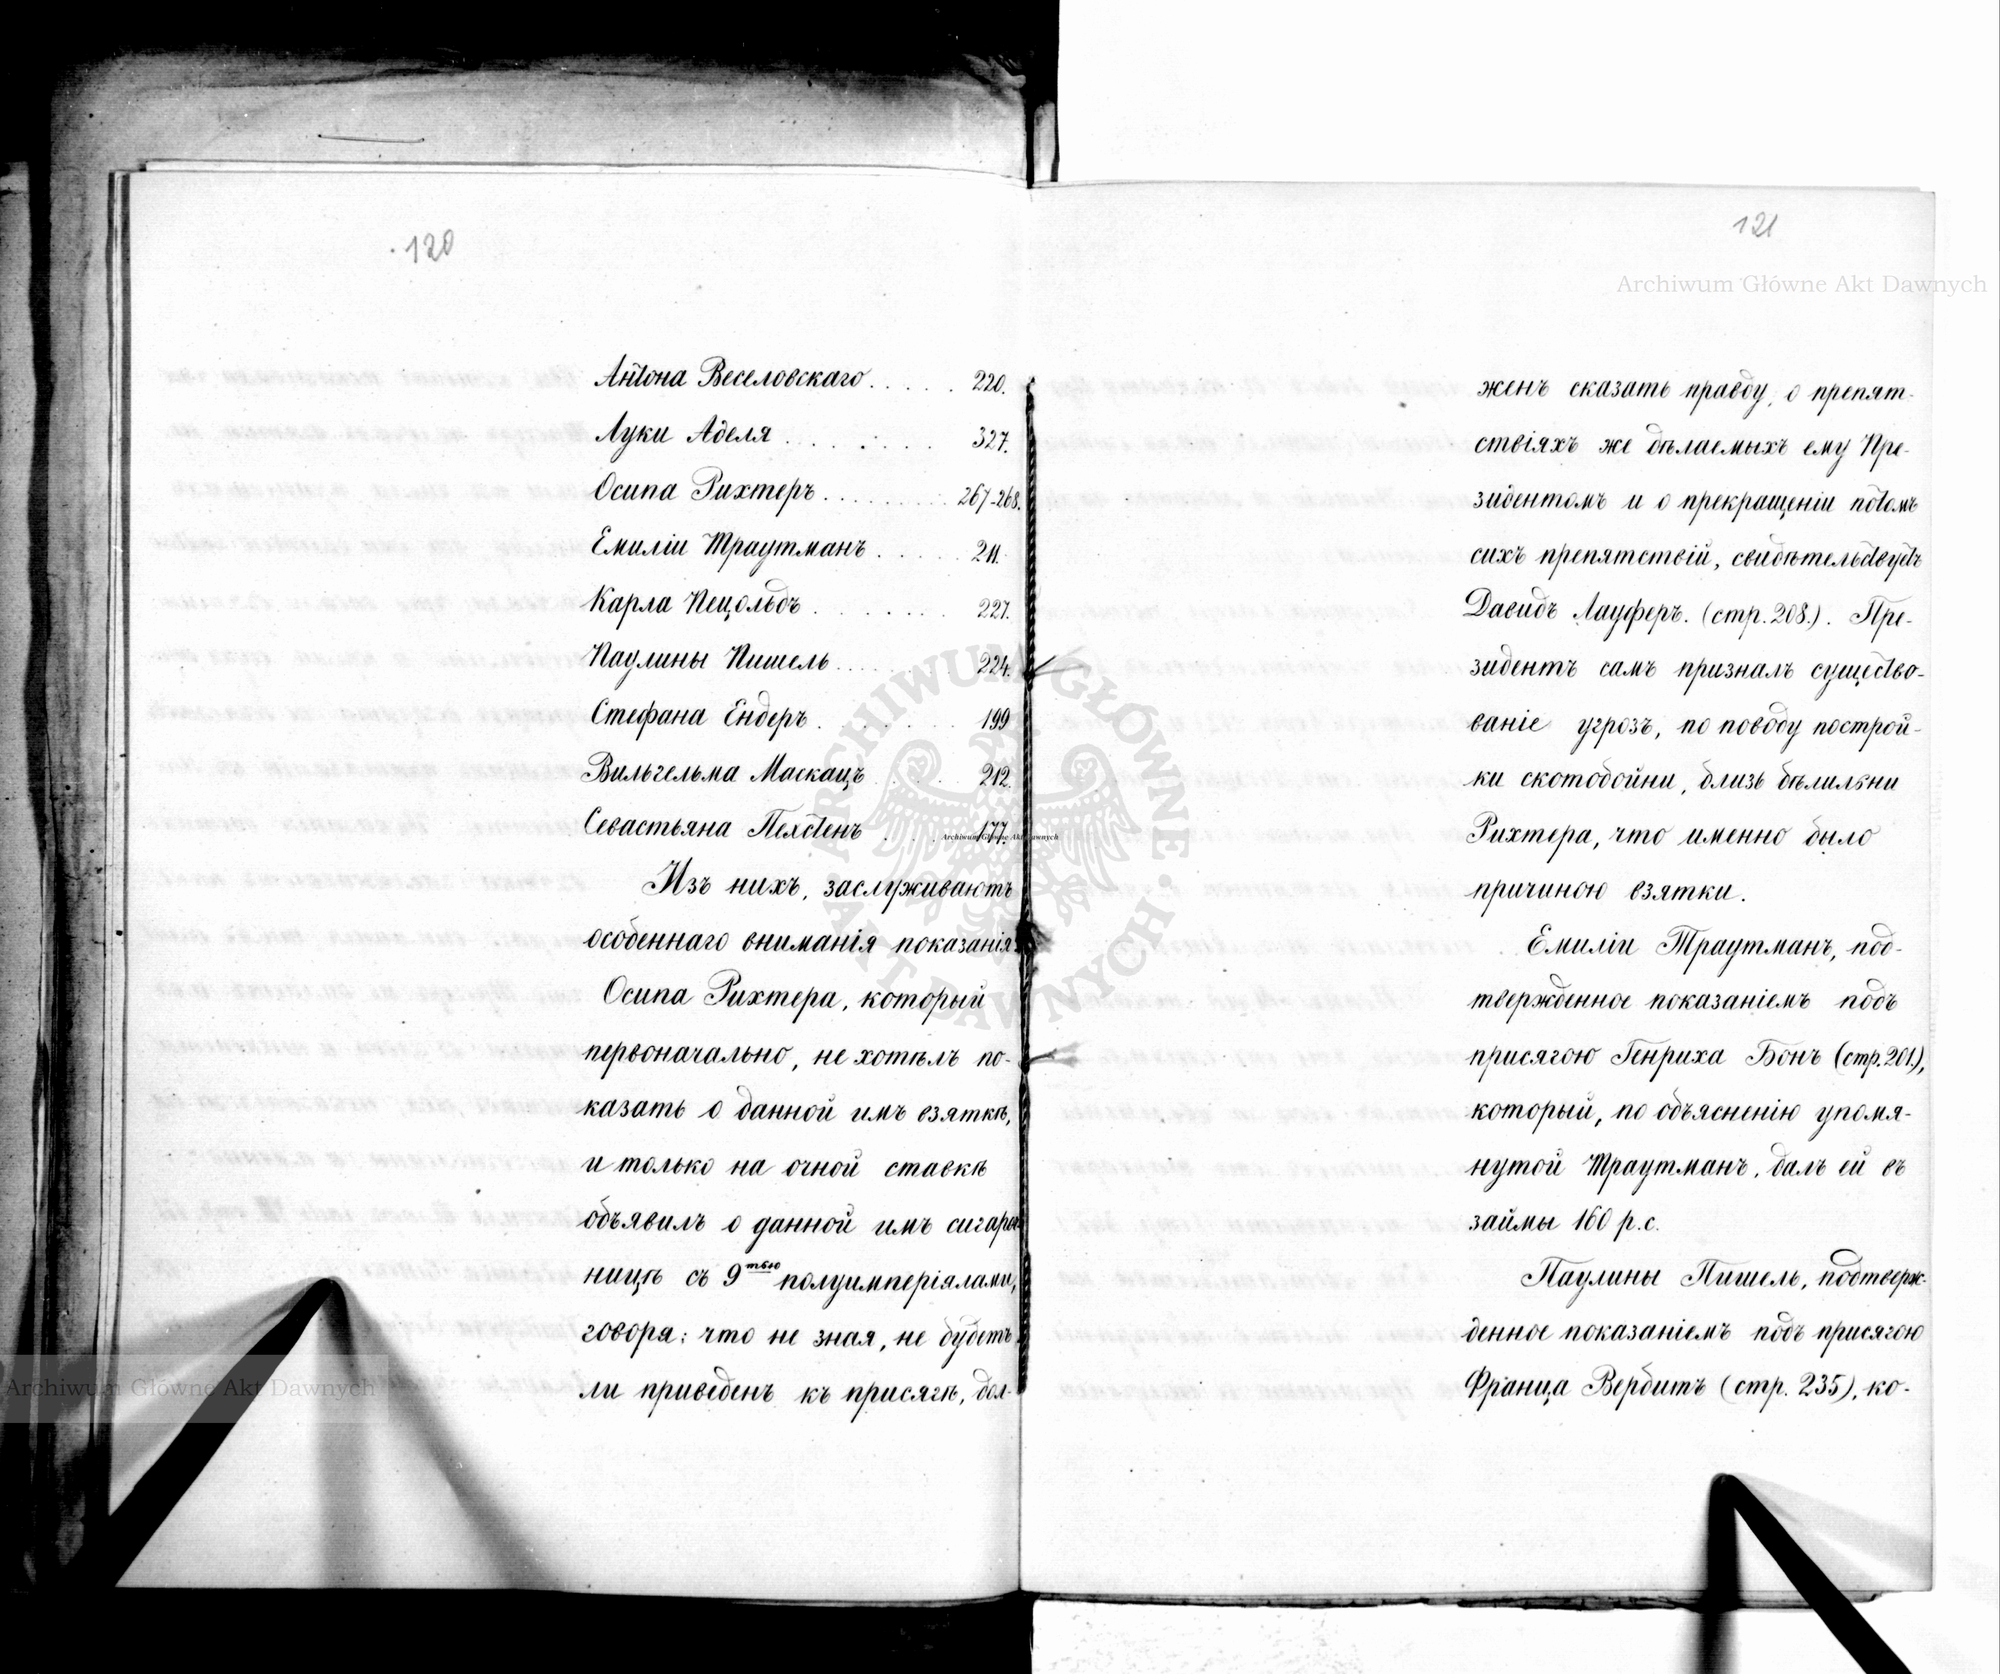 120
Антона Веселовскаго . . . . . 220.
Луки Аделя . . . . . . . 327.
Осипа Рихтеръ . . . . . . . . 267-268.
Емиліи Траутманъ . . . . . 211.
Карла Пецольдъ . . . . . . . 227.
Паулины Пишель . . . . . . 224.
Стефана Ендеръ . . . . . . . 199
Вильгельма Маскацъ . . . . . 212.
Севастьяна Пехстенъ . . . . 177.
Изъ нихъ, заслуживаютъ
особеннаго вниманія показанія
Осипа Рихтера, который
первоначально, не хотѣлъ по-
казать о данной имъ взяткѣ,
и только на очной ставкѣ
объявилъ о данной имъ сигароч-
ницѣ съ 9тью полуимперіялами,
говоря: что не зная, не будетъ
ли приведенъ къ присягѣ, дол-
121
женъ сказать правду, о препят-
ствіяхъ же дѣлаемыхъ ему Пре-
зидентомъ и о прекращеніи потомъ
сихъ препятствій, свидѣтельствуетъ
Давидъ Лауферъ. (стр. 208.). Пре-
зидентъ самъ призналъ существо-
ваніе угрозъ, по поводу построй-
ки скотобойни, близь бѣлильни
Рихтера, что именно было
причиною взятки.
Емиліи Траутманъ, под-
твержденное показаніемъ подъ
присягою Генриха Бонъ (стр. 201.),
который, по объясненію упомя-
нутой Траутманъ, далъ ей въ
займы 160 р. с.
Паулины Пишель, подтверж-
денное показаніемъ подъ присягою
Франца Вербитъ (стр. 235), ко-
Archiwum Główne Akt Dawnych
Archiwum Główne Akt Dawnych
Archiwum Główne Akt Dawnych
ARCHIWUM GŁÓWNE AKT DAWNYCH